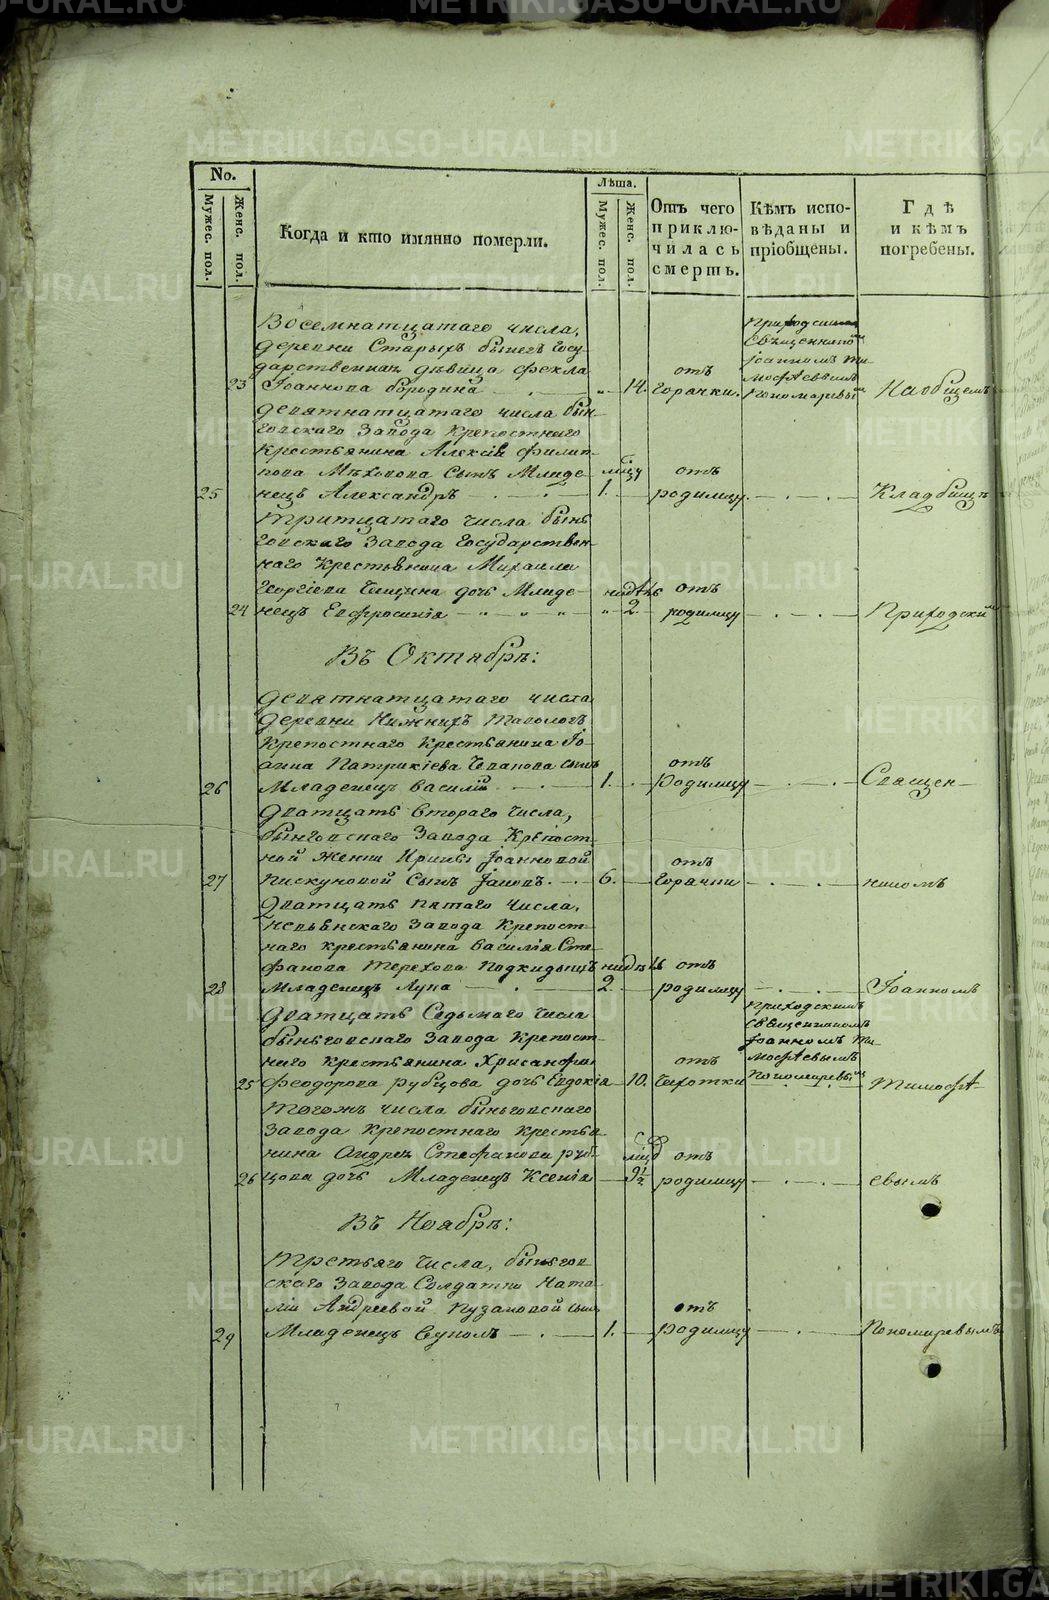 No.
Мужес. пол.
Женс. пол.
Когда и кто имянно померли.
Лѣта.
Мужес. пол.
Женс. пол.
Отъ чего приклю-
чилась
смерть.
Кѣмъ испо-
вѣданы и
пріобщены.
Гдѣ
и кѣмъ
погребены.
Восемнатцатаго числа,
деревни Старыхъ Быпегъ Госу-
дарственная дѣвица Фекла
23 Іоаннова Бородина 14. отъ горячки. Приходскимъ Священникомъ Іоанномъ Ти-
мофѣевымъ Пономаревымъ На общемъ
Девятнатцатаго числа Бын-
говскаго Завода Крепостнаго
Крестьянина Алексія Филип-
пова Мѣхонова Сынъ Младе-
25 нецъ Александръ 1. отъ родимцу. Кладбищѣ
Тритцатаго числа Бынь-
говскаго Завода Государствен-
наго Крестьянина Михаила
Георгіева дочь Младе-
24 нецъ Евфросинія недѣль 2. отъ родимцу Приходскимъ
Въ Октябрѣ:
Девятнатцатаго числа
деревни Нижнихъ Тавологъ
Крепостнаго Крестьянина Іо-
анна Патрикіева сынъ
26 Младенецъ Василій 1. отъ Родимцу Священ-
Дватцать втораго числа,
Быньговскаго Завода Крѣпост-
ной Женки Ирины Іоанновой
27 Пискуновой Сынъ Іаковъ. 6. отъ горячки никомъ
Дватцать пятаго числа,
Невьянскаго Завода Крепост-
наго крестьянина Василія Сте-
фанова Терехова Подкидышъ недѣль
28 Младенецъ Лупа 2. отъ родимцу Іоанномъ
Дватцать Седьмаго числа
Быньговскаго Завода Крепост-
наго крестьянина Хрисанфа
25 Феодорова Рубцова дочь Евдокія 10. отъ Чихотки Приходскимъ Священникомъ Іоанномъ Ти-
мофѣевымъ Пономаревымъ Тимофѣ-
Тогожъ числа Быньговскаго
Завода Крепостнаго Крестья-
нина Андрея Стефанова Руб-
26 цова дочь Младенецъ Ксенія 9½ отъ родимцу евымъ
Въ Ноябрѣ:
Третьяго числа, Быньгов-
скаго Завода Солдатки Ната-
ліи Андреевой Пузановой сынъ
29 Младенецъ 1. отъ Родимцу Пономаревымъ
METRIKI.GASO-URAL.RU